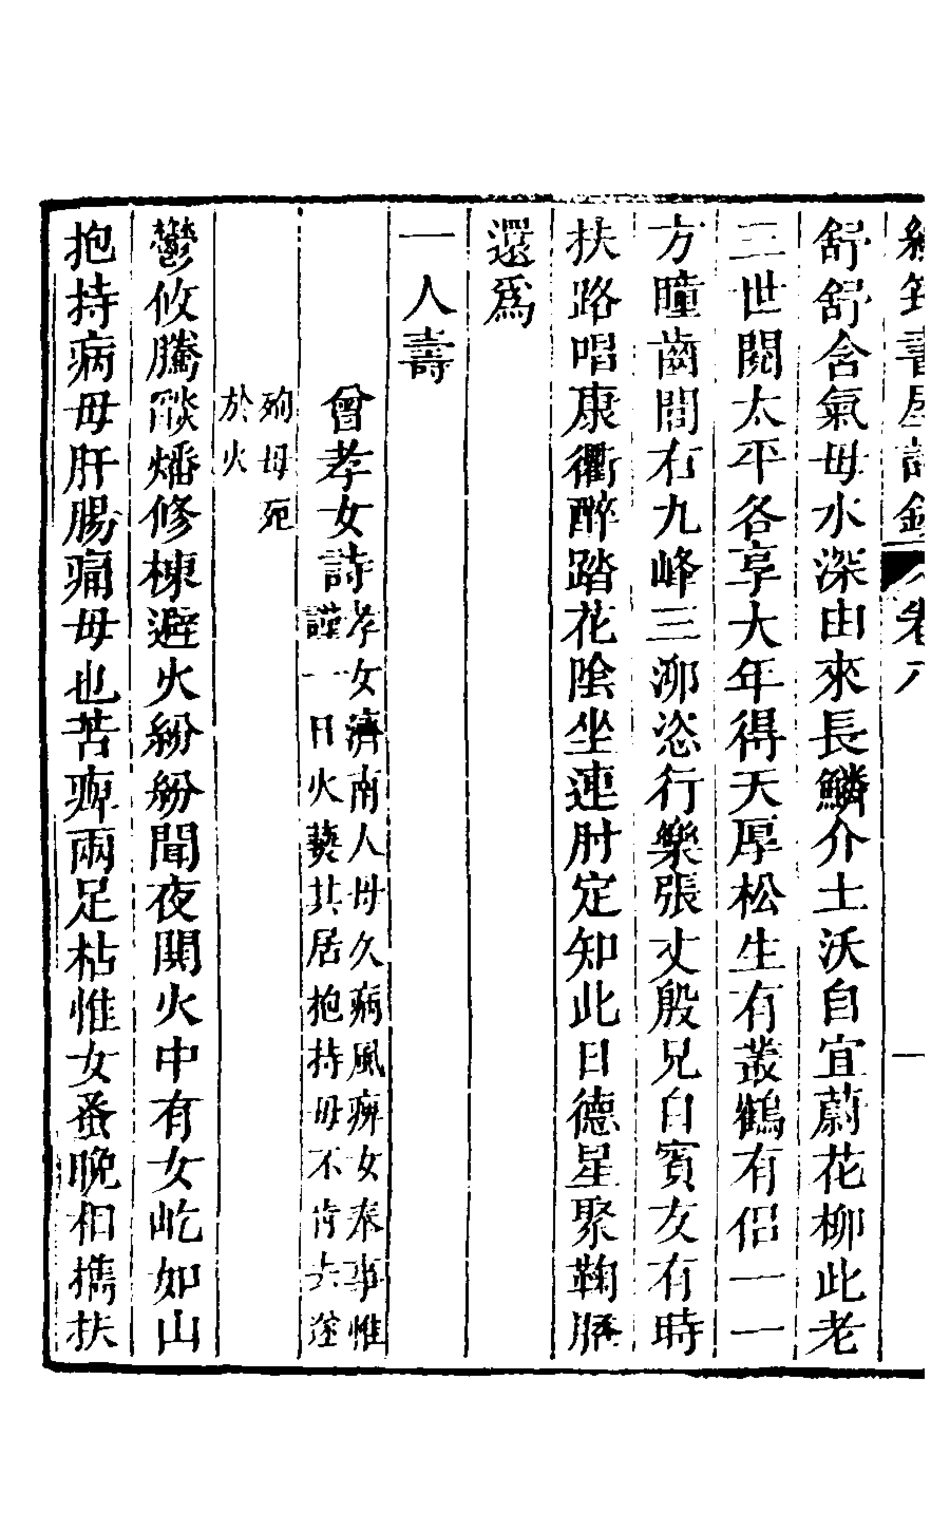 書屋詩鈔 卷八 一
舒舒含氣母水深由來長鱗介土沃自宜蔚花柳此老
三世閱太平各享大年得天厚松生有叢鶴有侶一一
方瞳齒間右九峰三泖恣行樂張丈殷兄自賓友有時
扶路唱康衢醉踏花陰坐連肘定知此日德星聚鞠𦜕
還爲
一人壽
曾孝女詩孝女濟南人母久病風痹女奉事惟
謹一日火爇其居抱持母不肯去遂
殉母死
於火
鬱攸騰燄燔修棟避火紛紛聞夜閧火中有女屹如山
抱持病母肝腸痛母也苦痹兩足枯惟女蚤晚相攜扶